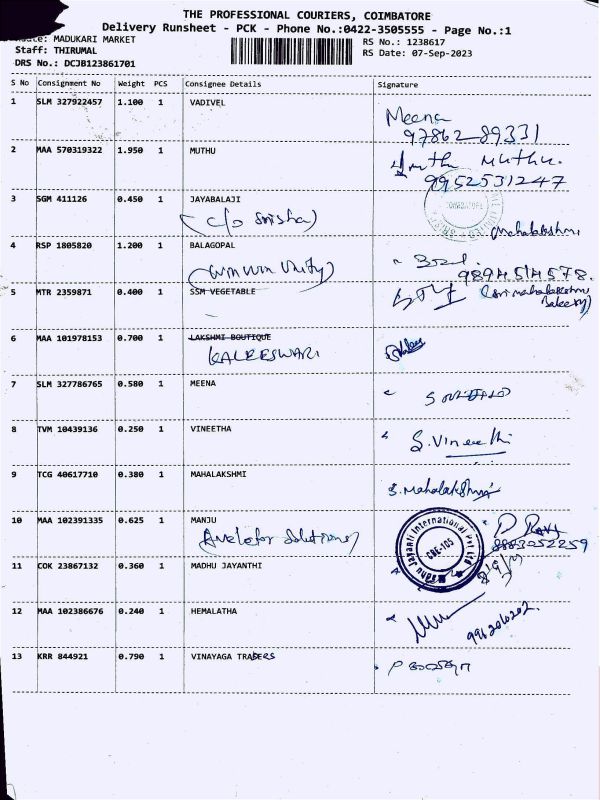 THE PROFESSIONAL COURIERS, COIMBATORE
Delivery Runsheet - PCK - Phone No.:0422-3505555 - Page No.:1
MADUKARI MARKET
RS No.: 1238617
Staff: THIRUMAL
RS Date: 07-Sep-2023
DRS No.: DCJB123861701
S No Consignment No Weight PCS Consignee Details Signature
1 SLM 327922457 1.100 1 VADIVEL
Meena
97862 89331
2 MAA 570319322 1.950 1 MUTHU
Muthu.
9952531247
3 SGM 411126 0.450 1 JAYABALAJI
Mahalakshmi
4 RSP 1805820 1.200 1 BALAGOPAL
(win win unity)
9894514578.
5 MTR 2359871 0.400 1 SSM VEGETABLE
(Sri mahalakshmi
Bakery)
6 MAA 101978153 0.700 1 LAKSHMI BOUTIQUE
KALEESWARI
7 SLM 327786765 0.580 1 MEENA
8 TVM 10439136 0.250 1 VINEETHA
S.Vineethi
9 TCG 40617710 0.380 1 MAHALAKSHMI
S.Mahalakshmi
10 MAA 102391335 0.625 1 MANJU
Solutions)
8883052259
Madhu Jayanti International Pvt Ltd
CBE-105
11 COK 23867132 0.360 1 MADHU JAYANTHI
12 MAA 102386676 0.240 1 HEMALATHA
13 KRR 844921 0.790 1 VINAYAGA TRADERS